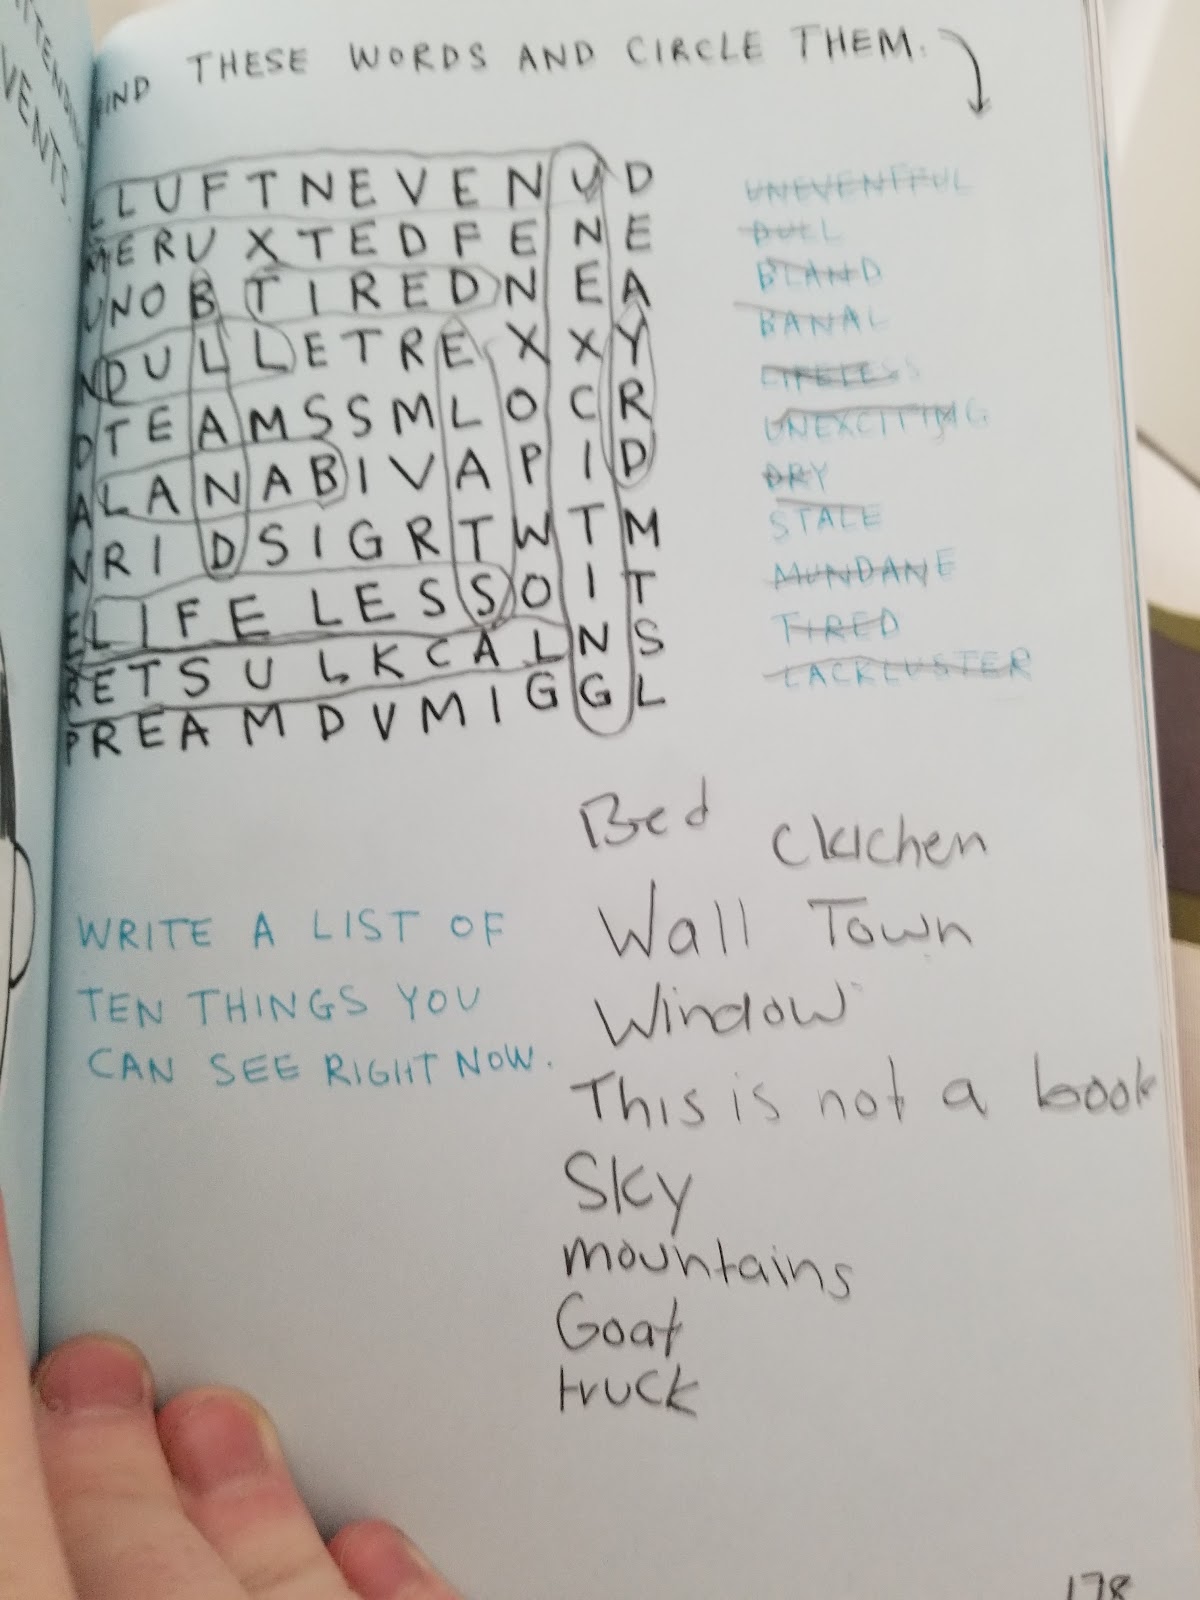 TTENDI
VENTS.
IND THESE WORDS AND CIRCLE THEM.
LLUFTNEVENUD
MERUXTEDFENE
UNOBTIREDNEA
NDULLETREXXY
DTEAMSSMLOCR
ALANABIVAPID
NRIDSIGRTWTM
ELIFELESSOIT
RETSULKCALNS
PREAMDVMIGGL
UNEVENTFUL
DULL
BLAND
BANAL
LIFELESS
UNEXCITING
DRY
STALE
MUNDANE
TIRED
LACKLUSTER
WRITE A LIST OF
TEN THINGS YOU
CAN SEE RIGHT NOW.
Bed
Wall Town
Window
This is not a book
Sky
mountains
Goat
truck
178